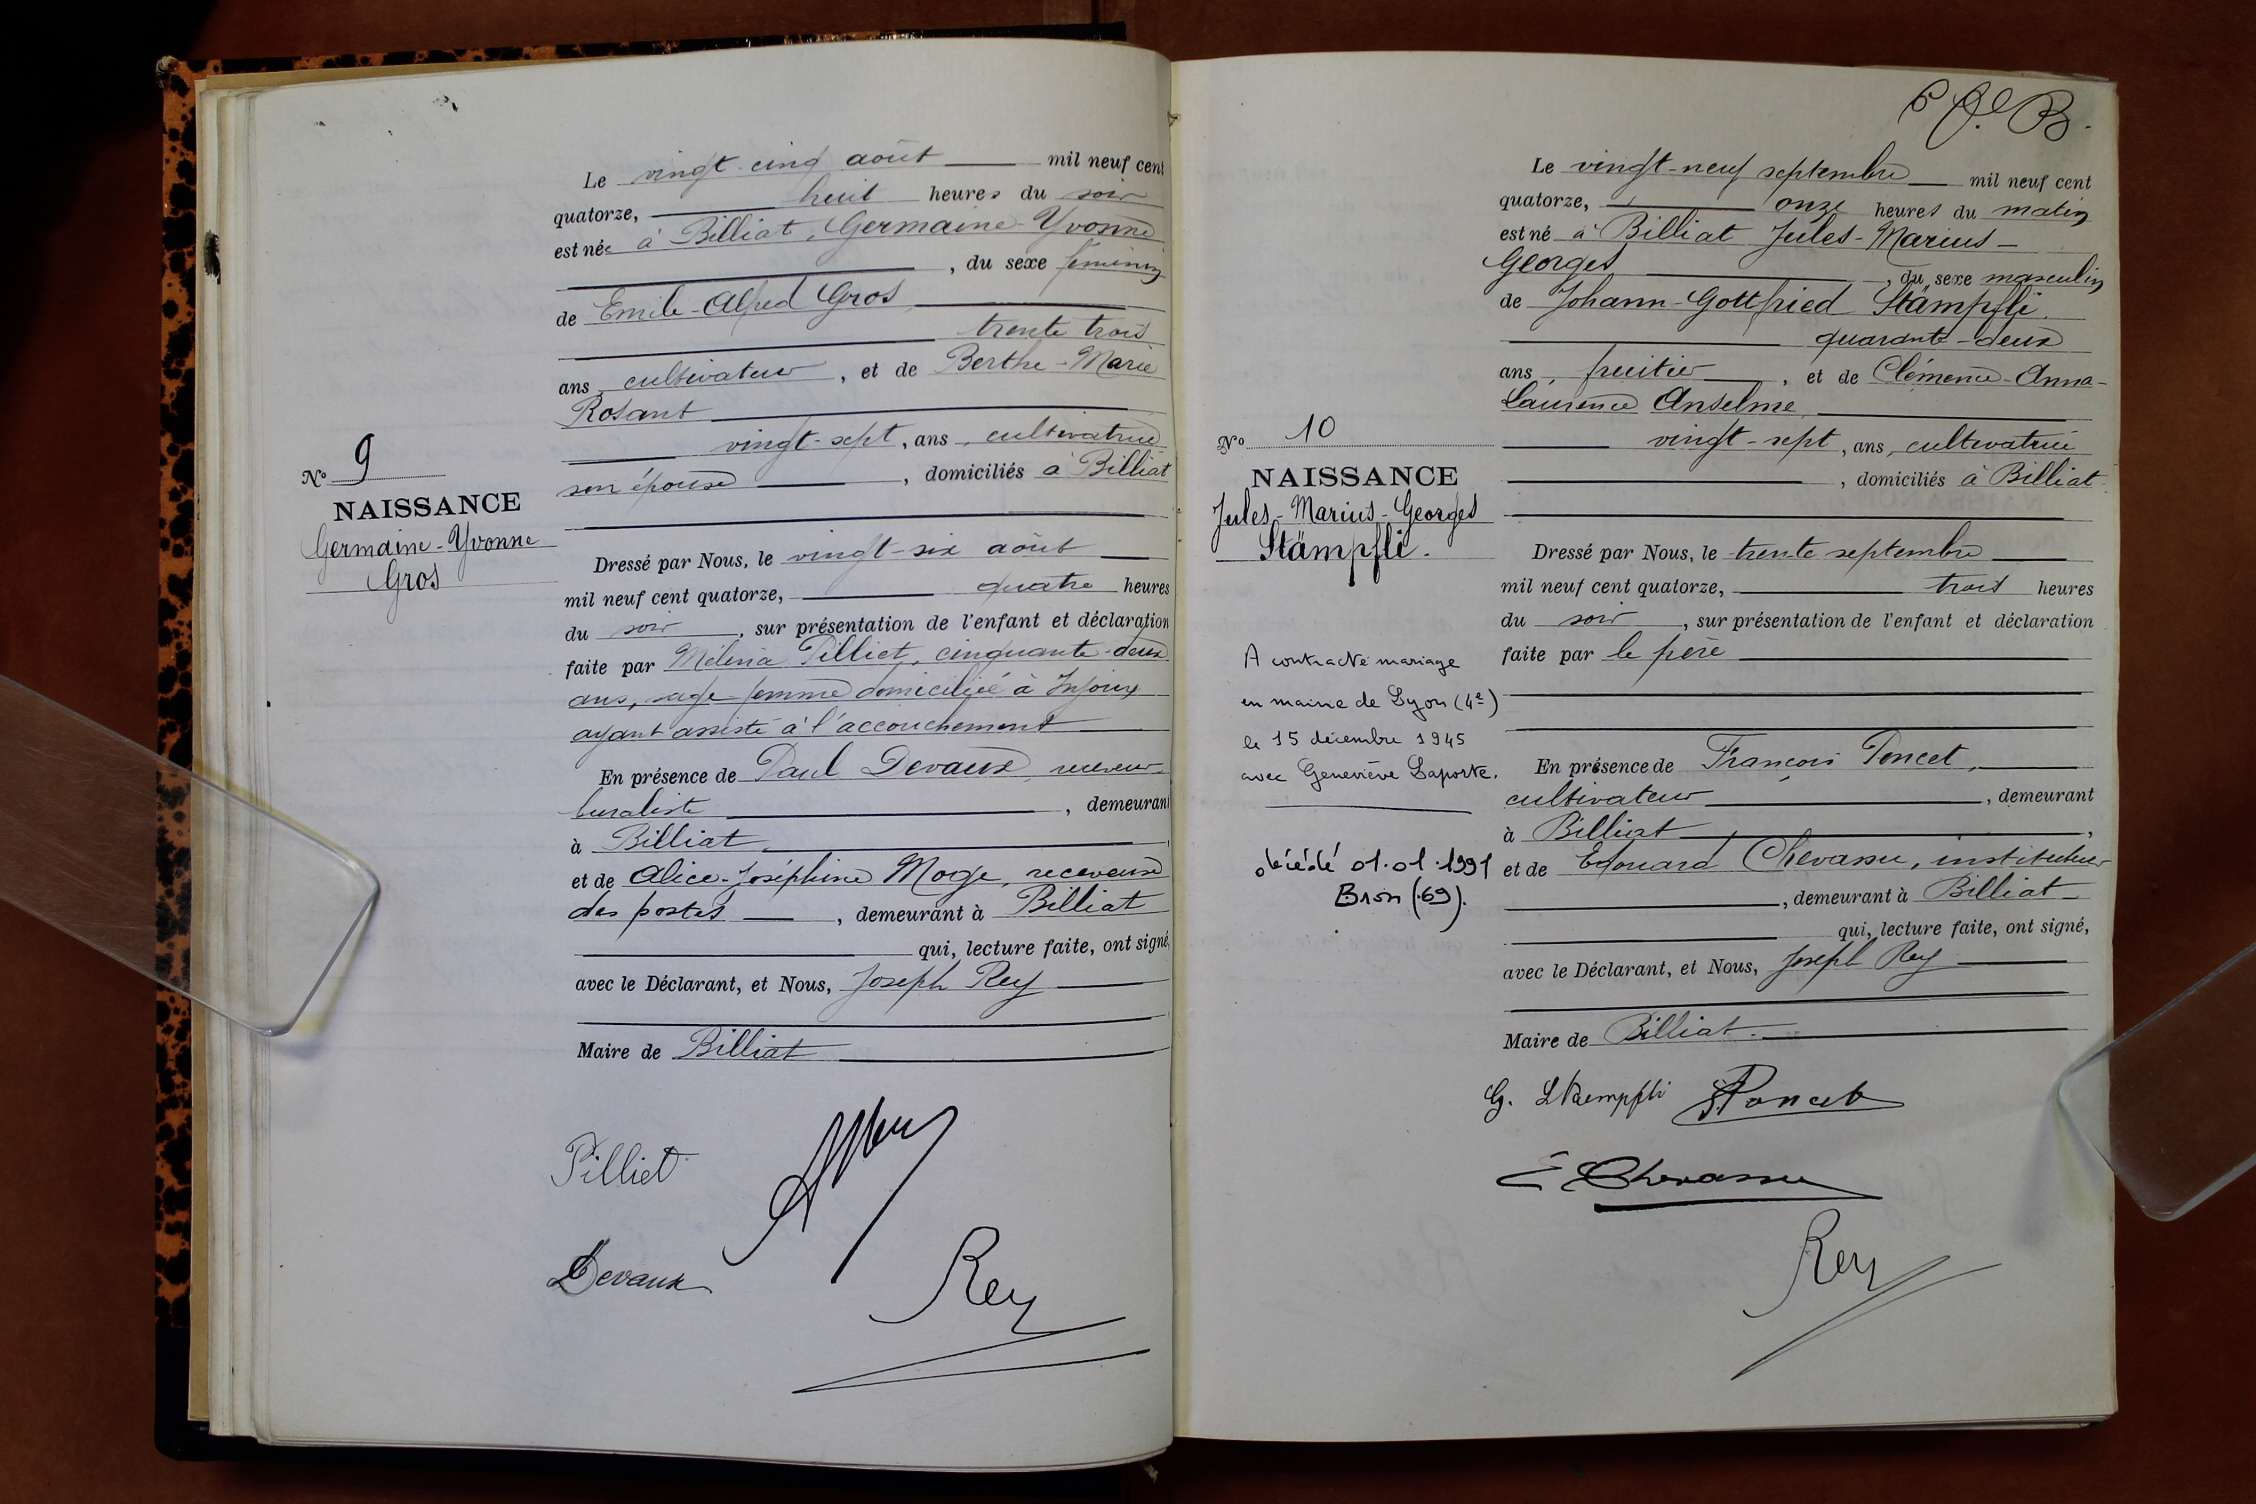 Le vingt-cinq août mil neuf cent
quatorze, huit heures du soir
est née à Billiat, Germaine-Yvonne
, du sexe féminin
de Emile-Alfred Gros
trente trois
ans cultivateur, et de Berthe-Marie
Rosant
vingt-sept, ans, cultivatrice
son épouse, domiciliés à Billiat
No 9
NAISSANCE
Germaine-Yvonne
Gros
Dressé par Nous, le vingt-six août
mil neuf cent quatorze, quatre heures
du soir, sur présentation de l'enfant et déclaration
faite par Mélina Pilliet, cinquante-deux
ans, sage-femme domiciliée à Injoux
ayant assisté à l'accouchement
En présence de Paul Devaux, receveur-
buraliste, demeurant
à Billiat,
et de Alice-Joséphine Moge, receveuse
des postes, demeurant à Billiat
qui, lecture faite, ont signé,
avec le Déclarant, et Nous, Joseph Rey
Maire de Billiat
Pilliet
Devaux
Rey
Le vingt-neuf septembre mil neuf cent
quatorze, onze heures du matin
est né à Billiat Jules-Marius-
Georges, du sexe masculin
de Johann-Gottfried Stämpfli.
quarante-deux
ans, fruitier, et de Clémence-Anna-
Laurence Anselme,
vingt-sept, ans, cultivatrice
, domiciliés à Billiat.
No 10
NAISSANCE
Jules-Marius-Georges
Stämpfli.
Dressé par Nous, le trente septembre
mil neuf cent quatorze, trois heures
du soir, sur présentation de l'enfant et déclaration
faite par le père
A contracté mariage
en mairie de Lyon (4e)
le 15 décembre 1945
avec Geneviève Laporte.
décédé 01.01.1991
Bron (69).
En présence de François Poncet,
cultivateur, demeurant
à Billiat,
et de Edouard Chevassu, instituteur
, demeurant à Billiat
qui, lecture faite, ont signé,
avec le Déclarant, et Nous, Joseph Rey
Maire de Billiat.
G. Stæmpfli Poncet
E Chevassu
Rey